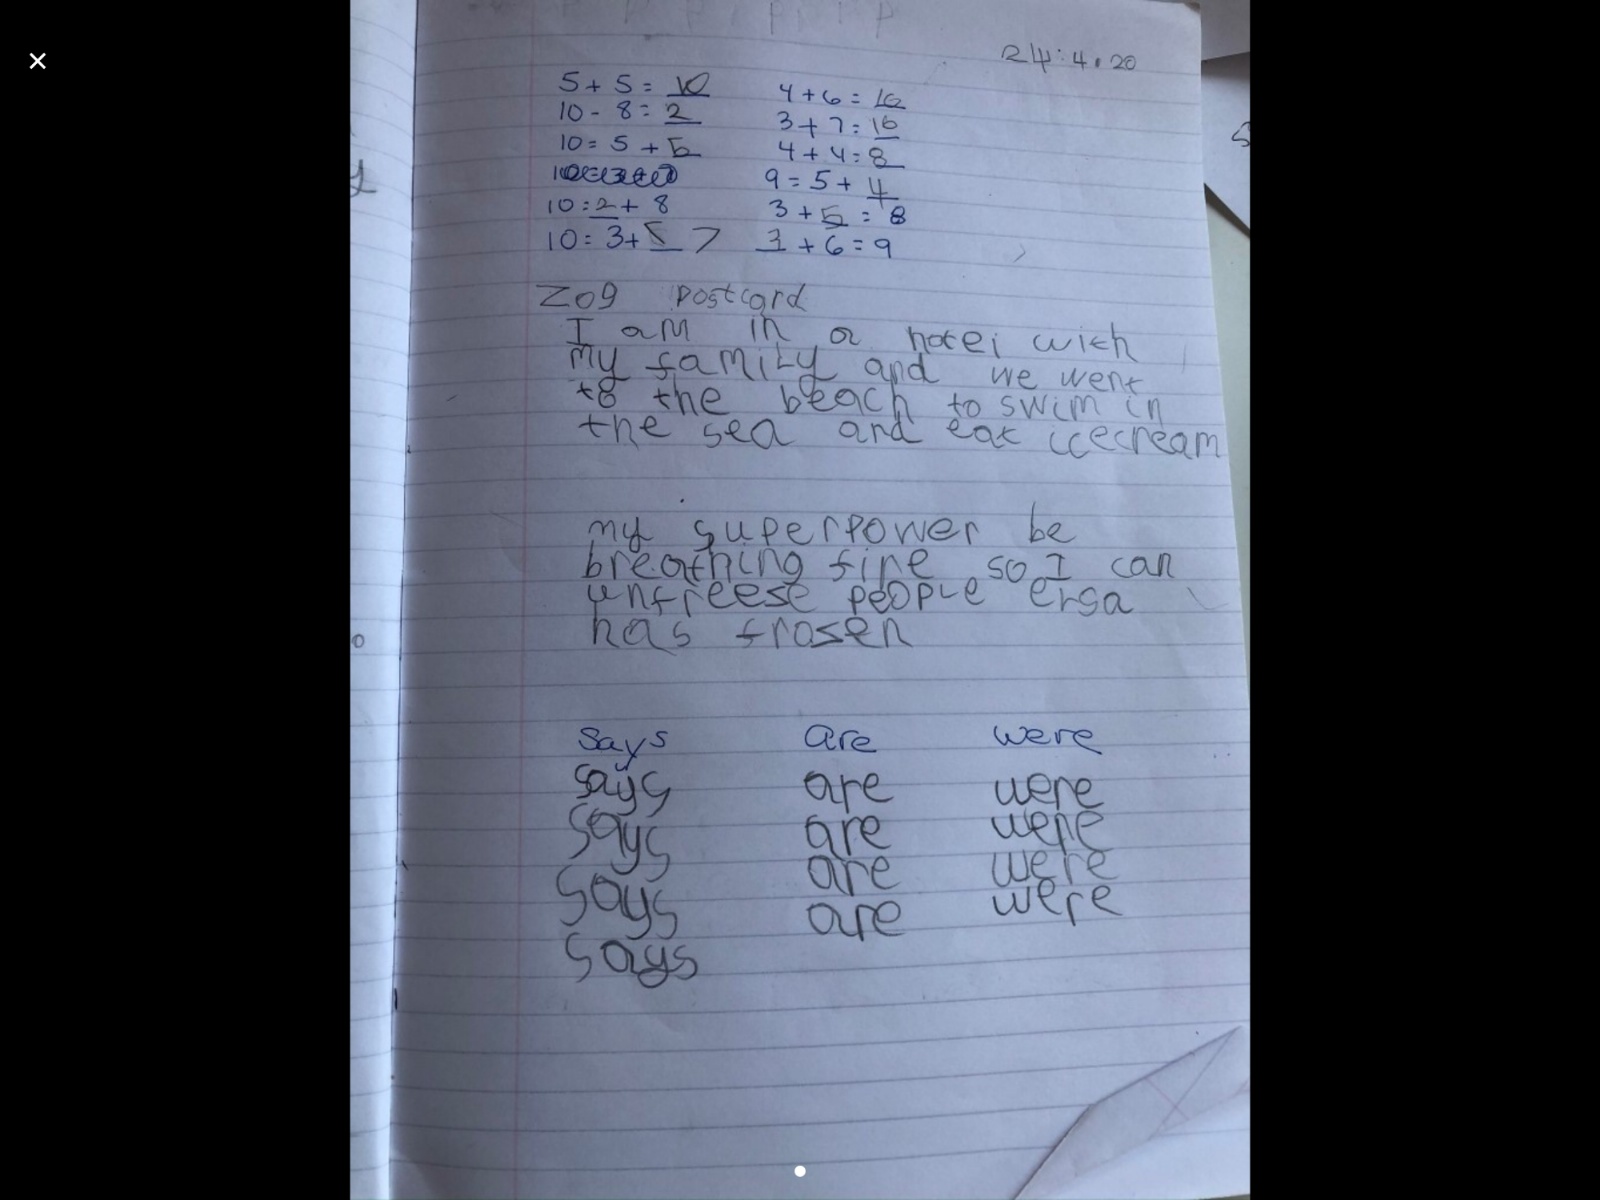 24.4.20
5 + 5 = 10
10 - 8 = 2
10 = 5 + 5
10 = 2 + 8
10 = 3 + 7
4 + 6 = 10
3 + 7 = 10
4 + 4 = 8
9 = 5 + 4
3 + 5 = 8
3 + 6 = 9
Zog postcard
I am in a hotel with
my family and we went
to the beach to swim in
the sea and eat icecream
my superpower be
breathing fire so I can
unfreese people ersa
has frosen
says are were
says are were
says are were
says are were
says are were